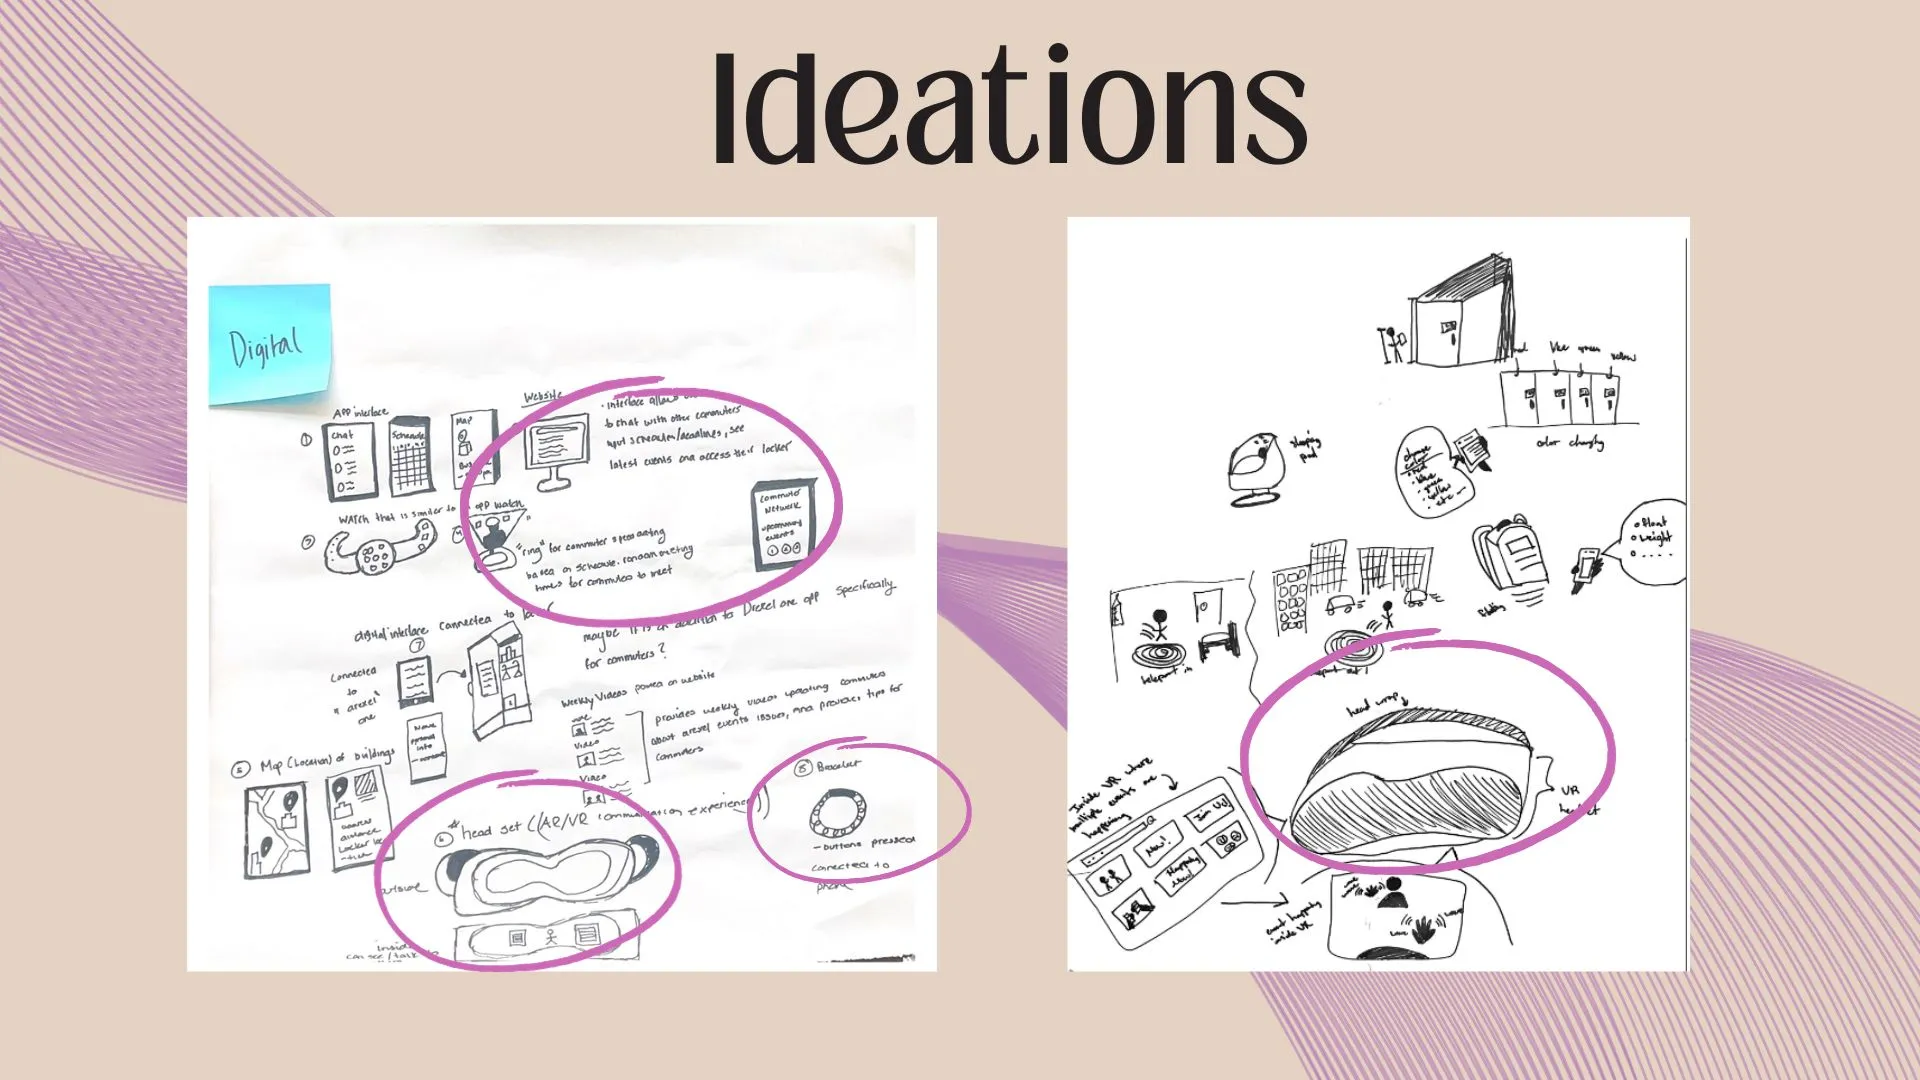 Ideations
Digital
APP interface
Chat
Schedule
Map
Website
to chat with other commuters
input schedules/deadlines, see
latest events and access their locker
WATCH that is similar to
app watch
"ring" for commuter
based on schedule, random meeting
times for commuters to meet
Commuter
Network
upcoming
events
1 2 3
digital interface connected to
7
connected
to
"drexel
one"
maybe it is an addition to Drexel one app specifically
for commuters?
Weekly Videos posted on website
Video
Video
provides weekly videos updating commuters
about drexel events issues, and provides tips for
commuters
Name
personal
info
5 Map (Location) of buildings
address
distance
6 * head set (AR/VR communication experience)
outside
inside
can see/talk
8 Bracelet
- buttons pressed
connected to
phone
red
blue
green
yellow
color changing
sleeping
pod
choose
color
red
blue
green
yellow
etc
float
weight
teleport in
head wrap
VR
headset
Inside VR where
multiple events are
happening
New!
Join Us!
Happening
Now!
event happening
inside VR
wave